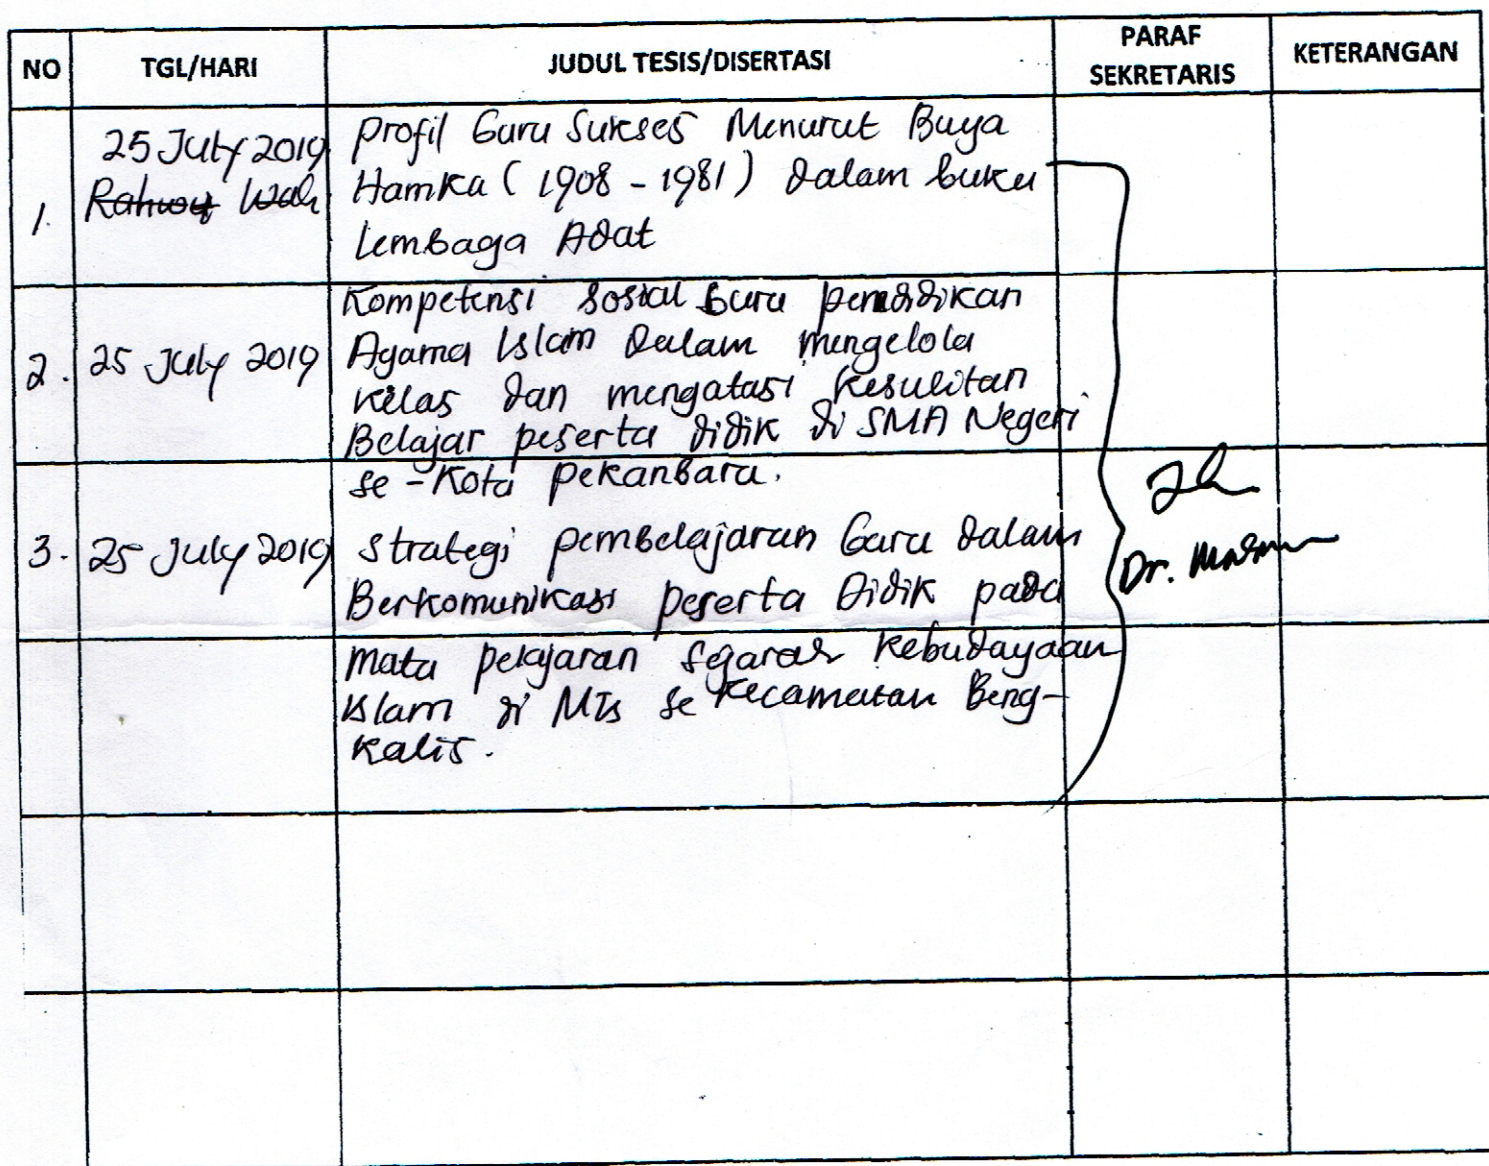 NO TGL/HARI JUDUL TESIS/DISERTASI PARAF SEKRETARIS KETERANGAN
1. 25 July 2019
Profil Guru Sukses Menurut Buya
Hamka (1908 - 1981) dalam buku
Lembaga Adat
2. 25 July 2019
Kompetensi Sosial Guru pendidikan
Agama Islam Dalam mengelola
kelas dan mengatasi kesulitan
Belajar peserta didik di SMA Negeri
se-Kota Pekanbaru.
3. 25 July 2019
Strategi pembelajaran Guru dalam
Berkomunikasi peserta Didik pada
mata pelajaran sejarah kebudayaan
Islam di MTs se Kecamatan Beng-
kalis.
Dr.